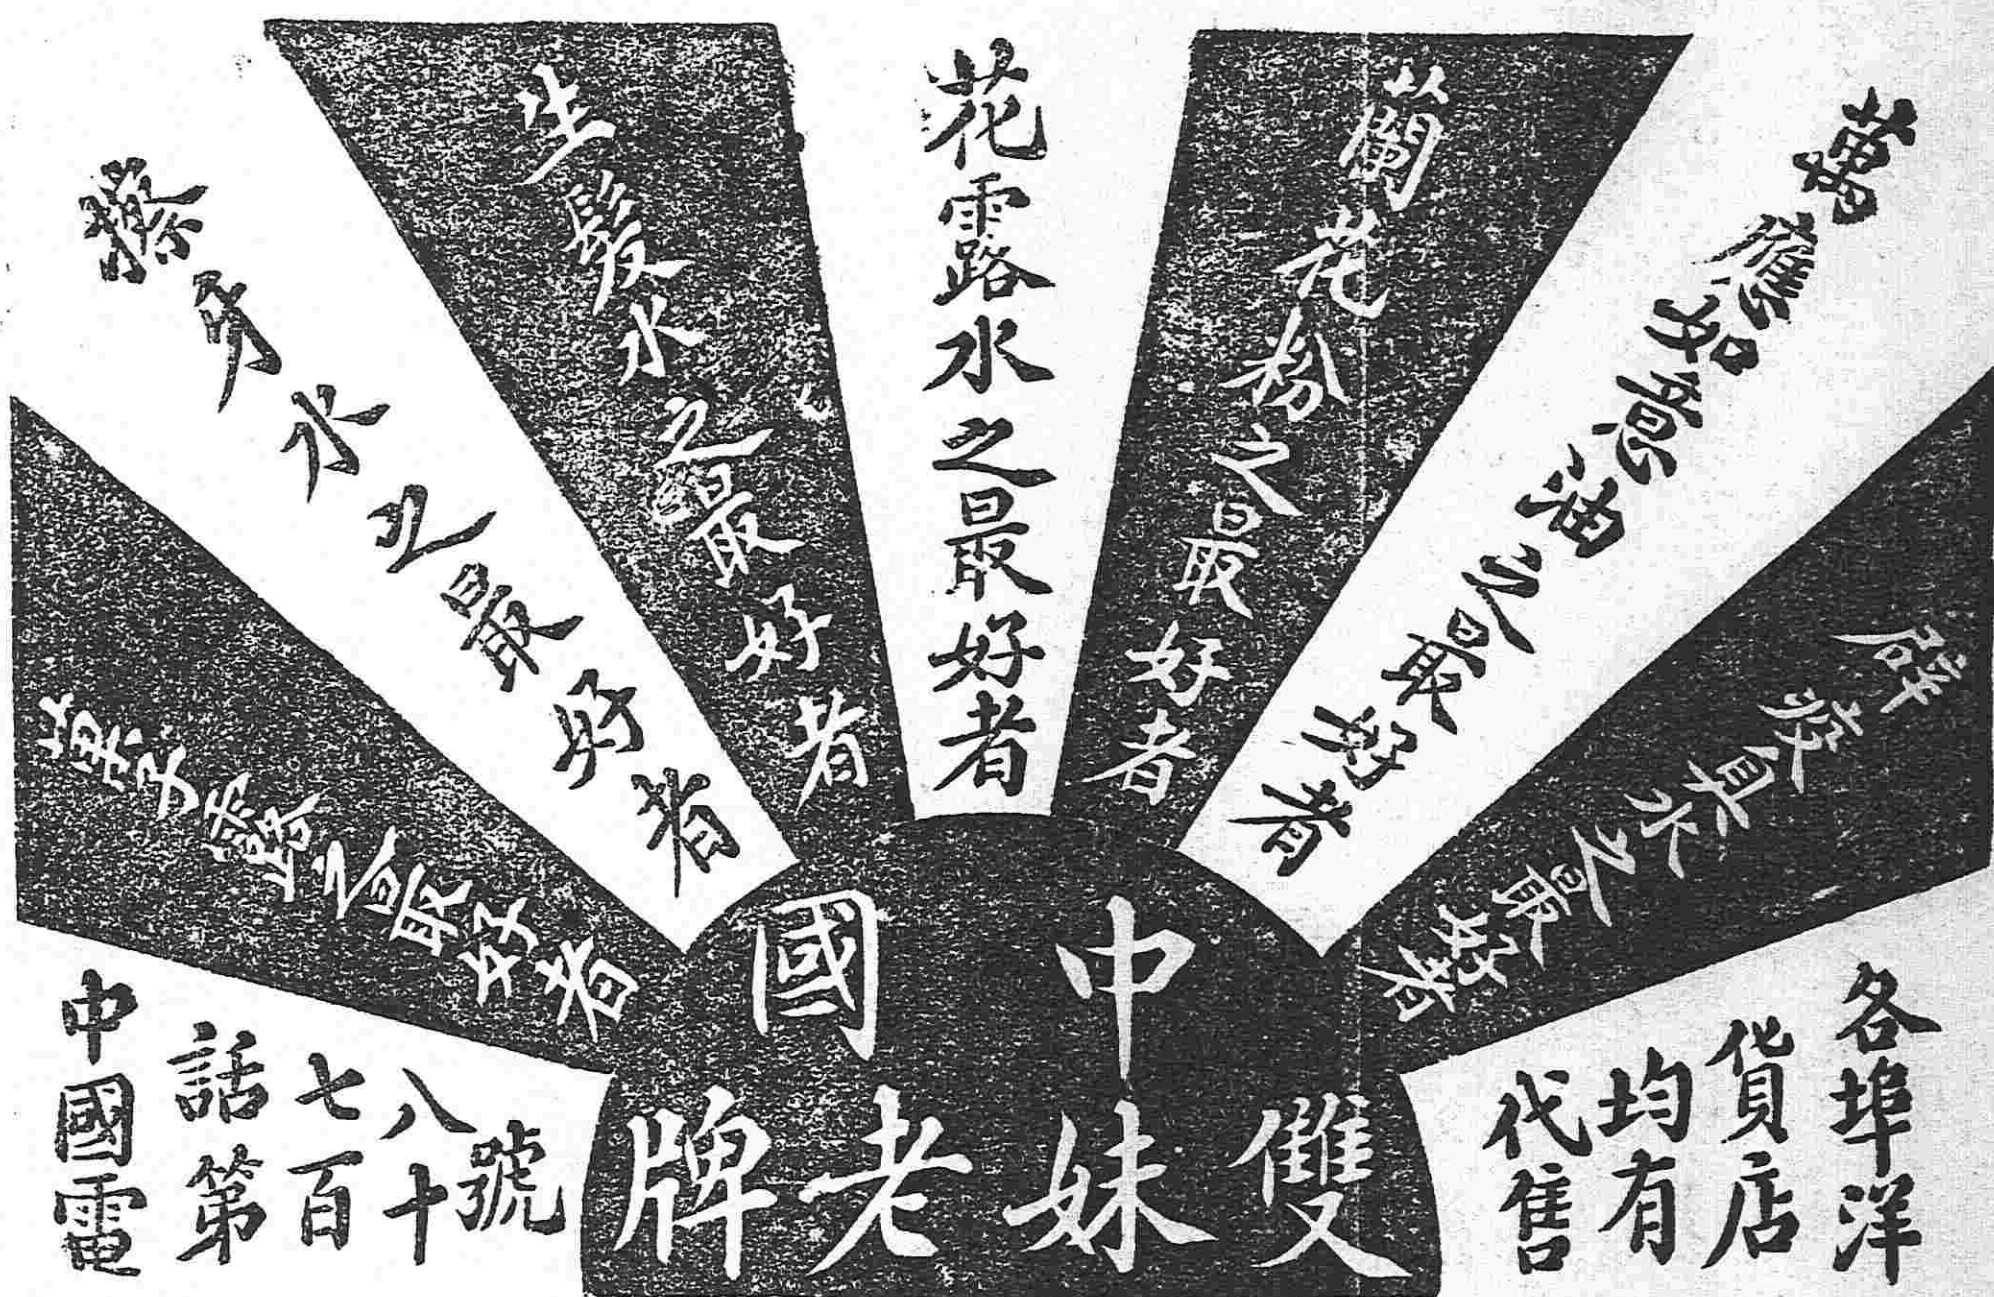 辟疫臭水之最好者
萬應如意油之最好者
蘭花粉之最好者
花露水之最好者
生髮水之最好者
擦牙水之最好者
菓子露之最好者
中國
雙妹老牌
各埠洋
貨店
均有
代售
中國電
話第
七百
八十
號